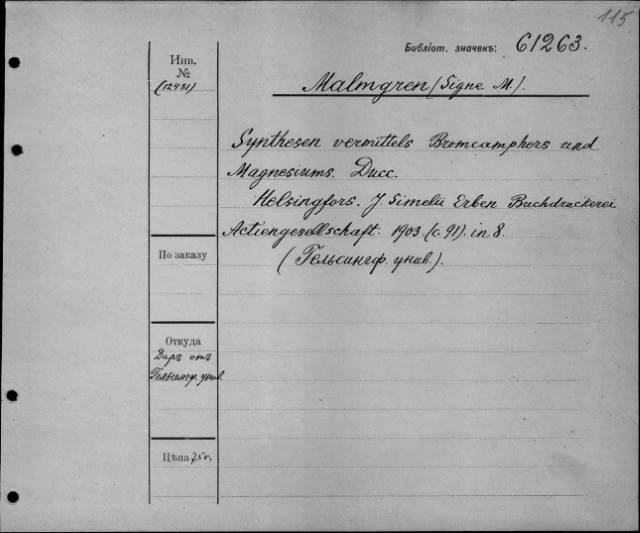 115
Библіот. значекъ: 61263.
Инв.
№
(12431)
Malmgren (Signe M.).
Synthesen vermittels Bromcamphers und
Magnesiums. Дисс.
Helsingfors. J. Simelii Erben Buchdruckerei
Actiengesellschaft. 1903. (с. 91). in 8.
(Гельсингф. унив.).
По заказу
Откуда
Даръ отъ
Гельсингф. унив.
Цѣна